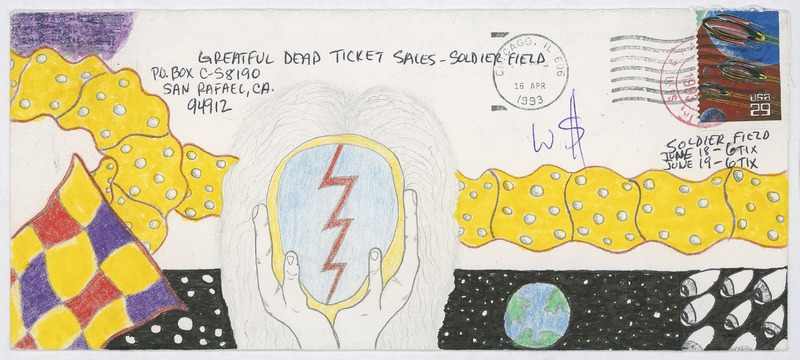 GREATFUL DEAD TICKET SALES - SOLDIER FIELD
P.O. BOX C-S8190
SAN RAFAEL, CA.
94912
CHICAGO, IL 606
15 APR
1993
USA
29
W$
SOLDIER FIELD
JUNE 18 - 6 TIX
JUNE 19 - 6 TIX
1993